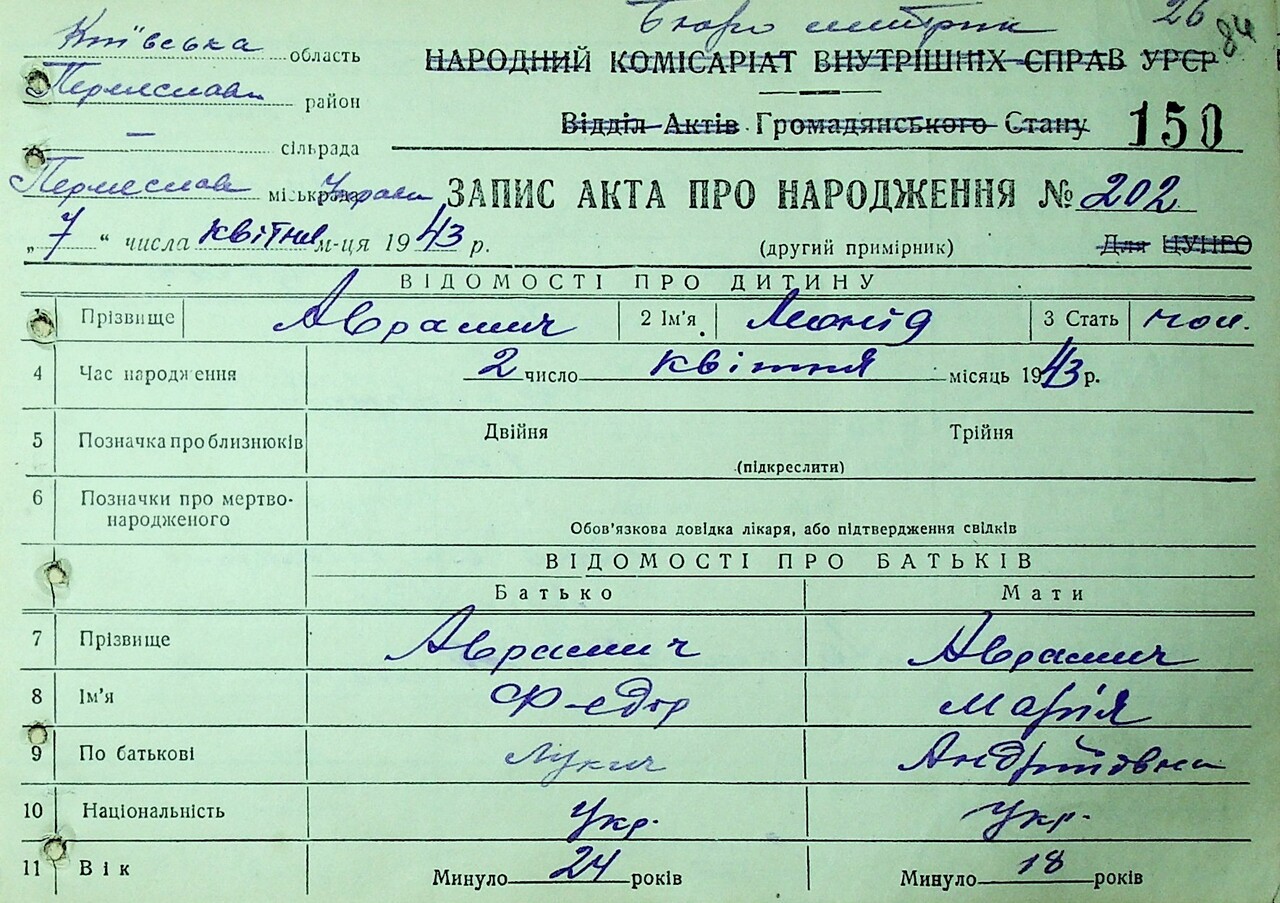 Бюро метрик 26 84
Київська область
НАРОДНИЙ КОМІСАРІАТ ВНУТРІШНІХ СПРАВ УРСР
Переяслав район
Відділ Актів Громадянського Стану 150
— сільрада
Переяслав міськрада Управа
ЗАПИС АКТА ПРО НАРОДЖЕННЯ № 202
„7“ числа квітня м-ця 1943 р.
(другий примірник) Для ЦУНГО
ВІДОМОСТІ ПРО ДИТИНУ
1 Прізвище Аврамич 2 Ім'я Леонід 3 Стать чол.
4 Час народження 2 число квітня місяць 1943 р.
5 Позначка про близнюків Двійня Трійня
(підкреслити)
6 Позначки про мертво-
народженого
Обов'язкова довідка лікаря, або підтвердження свідків
ВІДОМОСТІ ПРО БАТЬКІВ
Батько Мати
7 Прізвище Аврамич Аврамич
8 Ім'я Федор Марія
9 По батькові Лукич Андріївна
10 Національність Укр. Укр.
11 Вік Минуло 24 років Минуло 18 років